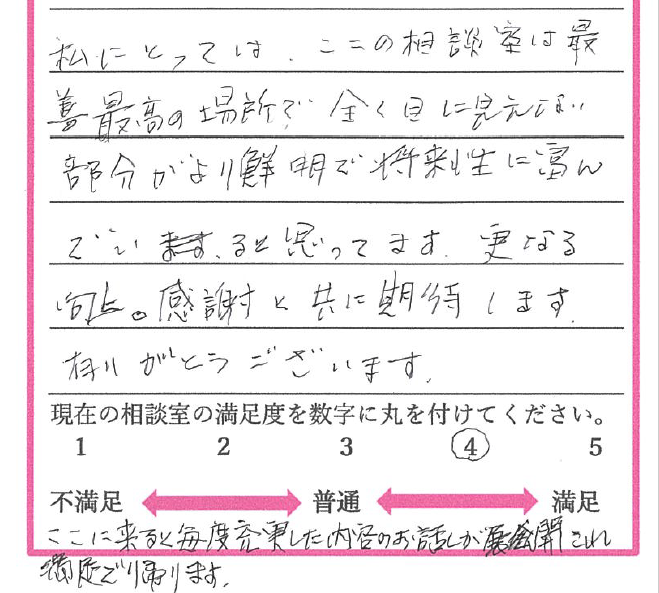 私にとっては、ここの相談室は最
善最高の場所で 全く目に見えない
部分がより鮮明で将来性に富ん
でいると思ってます。更なる
向上。感謝と共に期待します。
有りがとうございます。
現在の相談室の満足度を数字に丸を付けてください。
1 2 3 4 5
不満足 普通 満足
ここに来ると毎度充実した内容のお話しが展開され
満足でり取ります。